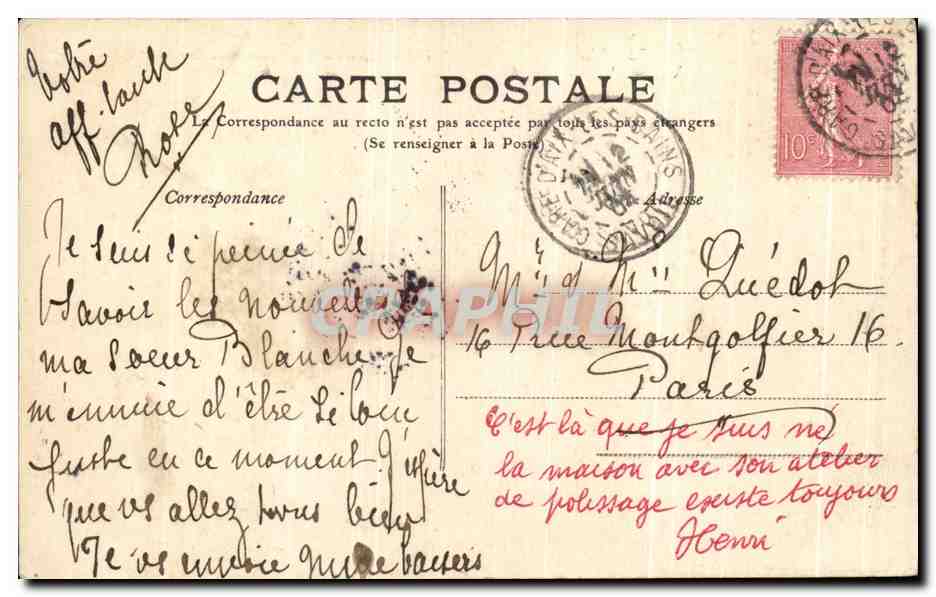 Votre
aff. tante
Rose
CARTE POSTALE
La Correspondance au recto n'est pas acceptée par tous les pays étrangers
(Se renseigner à la Poste)
Correspondance
Adresse
GARE D'AIX-LES-BAINS
12
10c
Je suis si peinée de
savoir les nouvelles
ma soeur Blanche je
m'ennuie d'être si loin
juste en ce moment J'espère
que vs allez tous bien
Je vs envoie mille baisers
Mr & Mme Quédot
16 rue Montgolfier 16
Paris
C'est là que je suis né
la maison avec son atelier
de polissage existe toujours
Henri
CPAPHIL